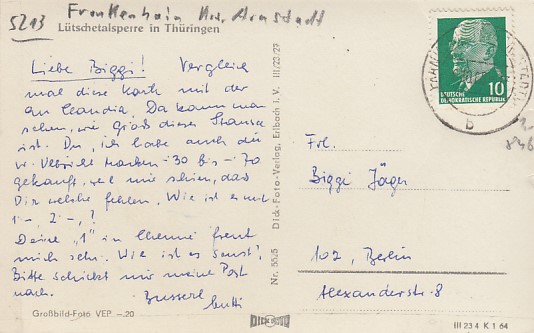 5213 Frankenhain Krs. Arnstadt
Lütschetalsperre in Thüringen
Liebe Biggi! Vergleich
mal diese Karte mit der
an Claudia. Da kann man
sehen, wie groß dieser Stausee
ist. Du, ich habe auch die
W. Marken -30 bis -70
gekauft, weil mir schien, das
Dir welche fehlen. Wie ist es mit
1,-, 2,-,?
Deine „1" in Chemie freut
mich sehr. Wie ist es sonst?
Bitte schickt mir meine Post
nach.
Busserl
Gutti
Großbild-Foto VEP -.20
Nr. 55/5 Dick-Foto-Verlag, Erlbach i. V. III/23/27
DICK
10
DEUTSCHE
DEMOKRATISCHE REPUBLIK
b
Frl.
Biggi Jäger
102, Berlin
Alexanderstr. 8
III 23 4 K 1 64